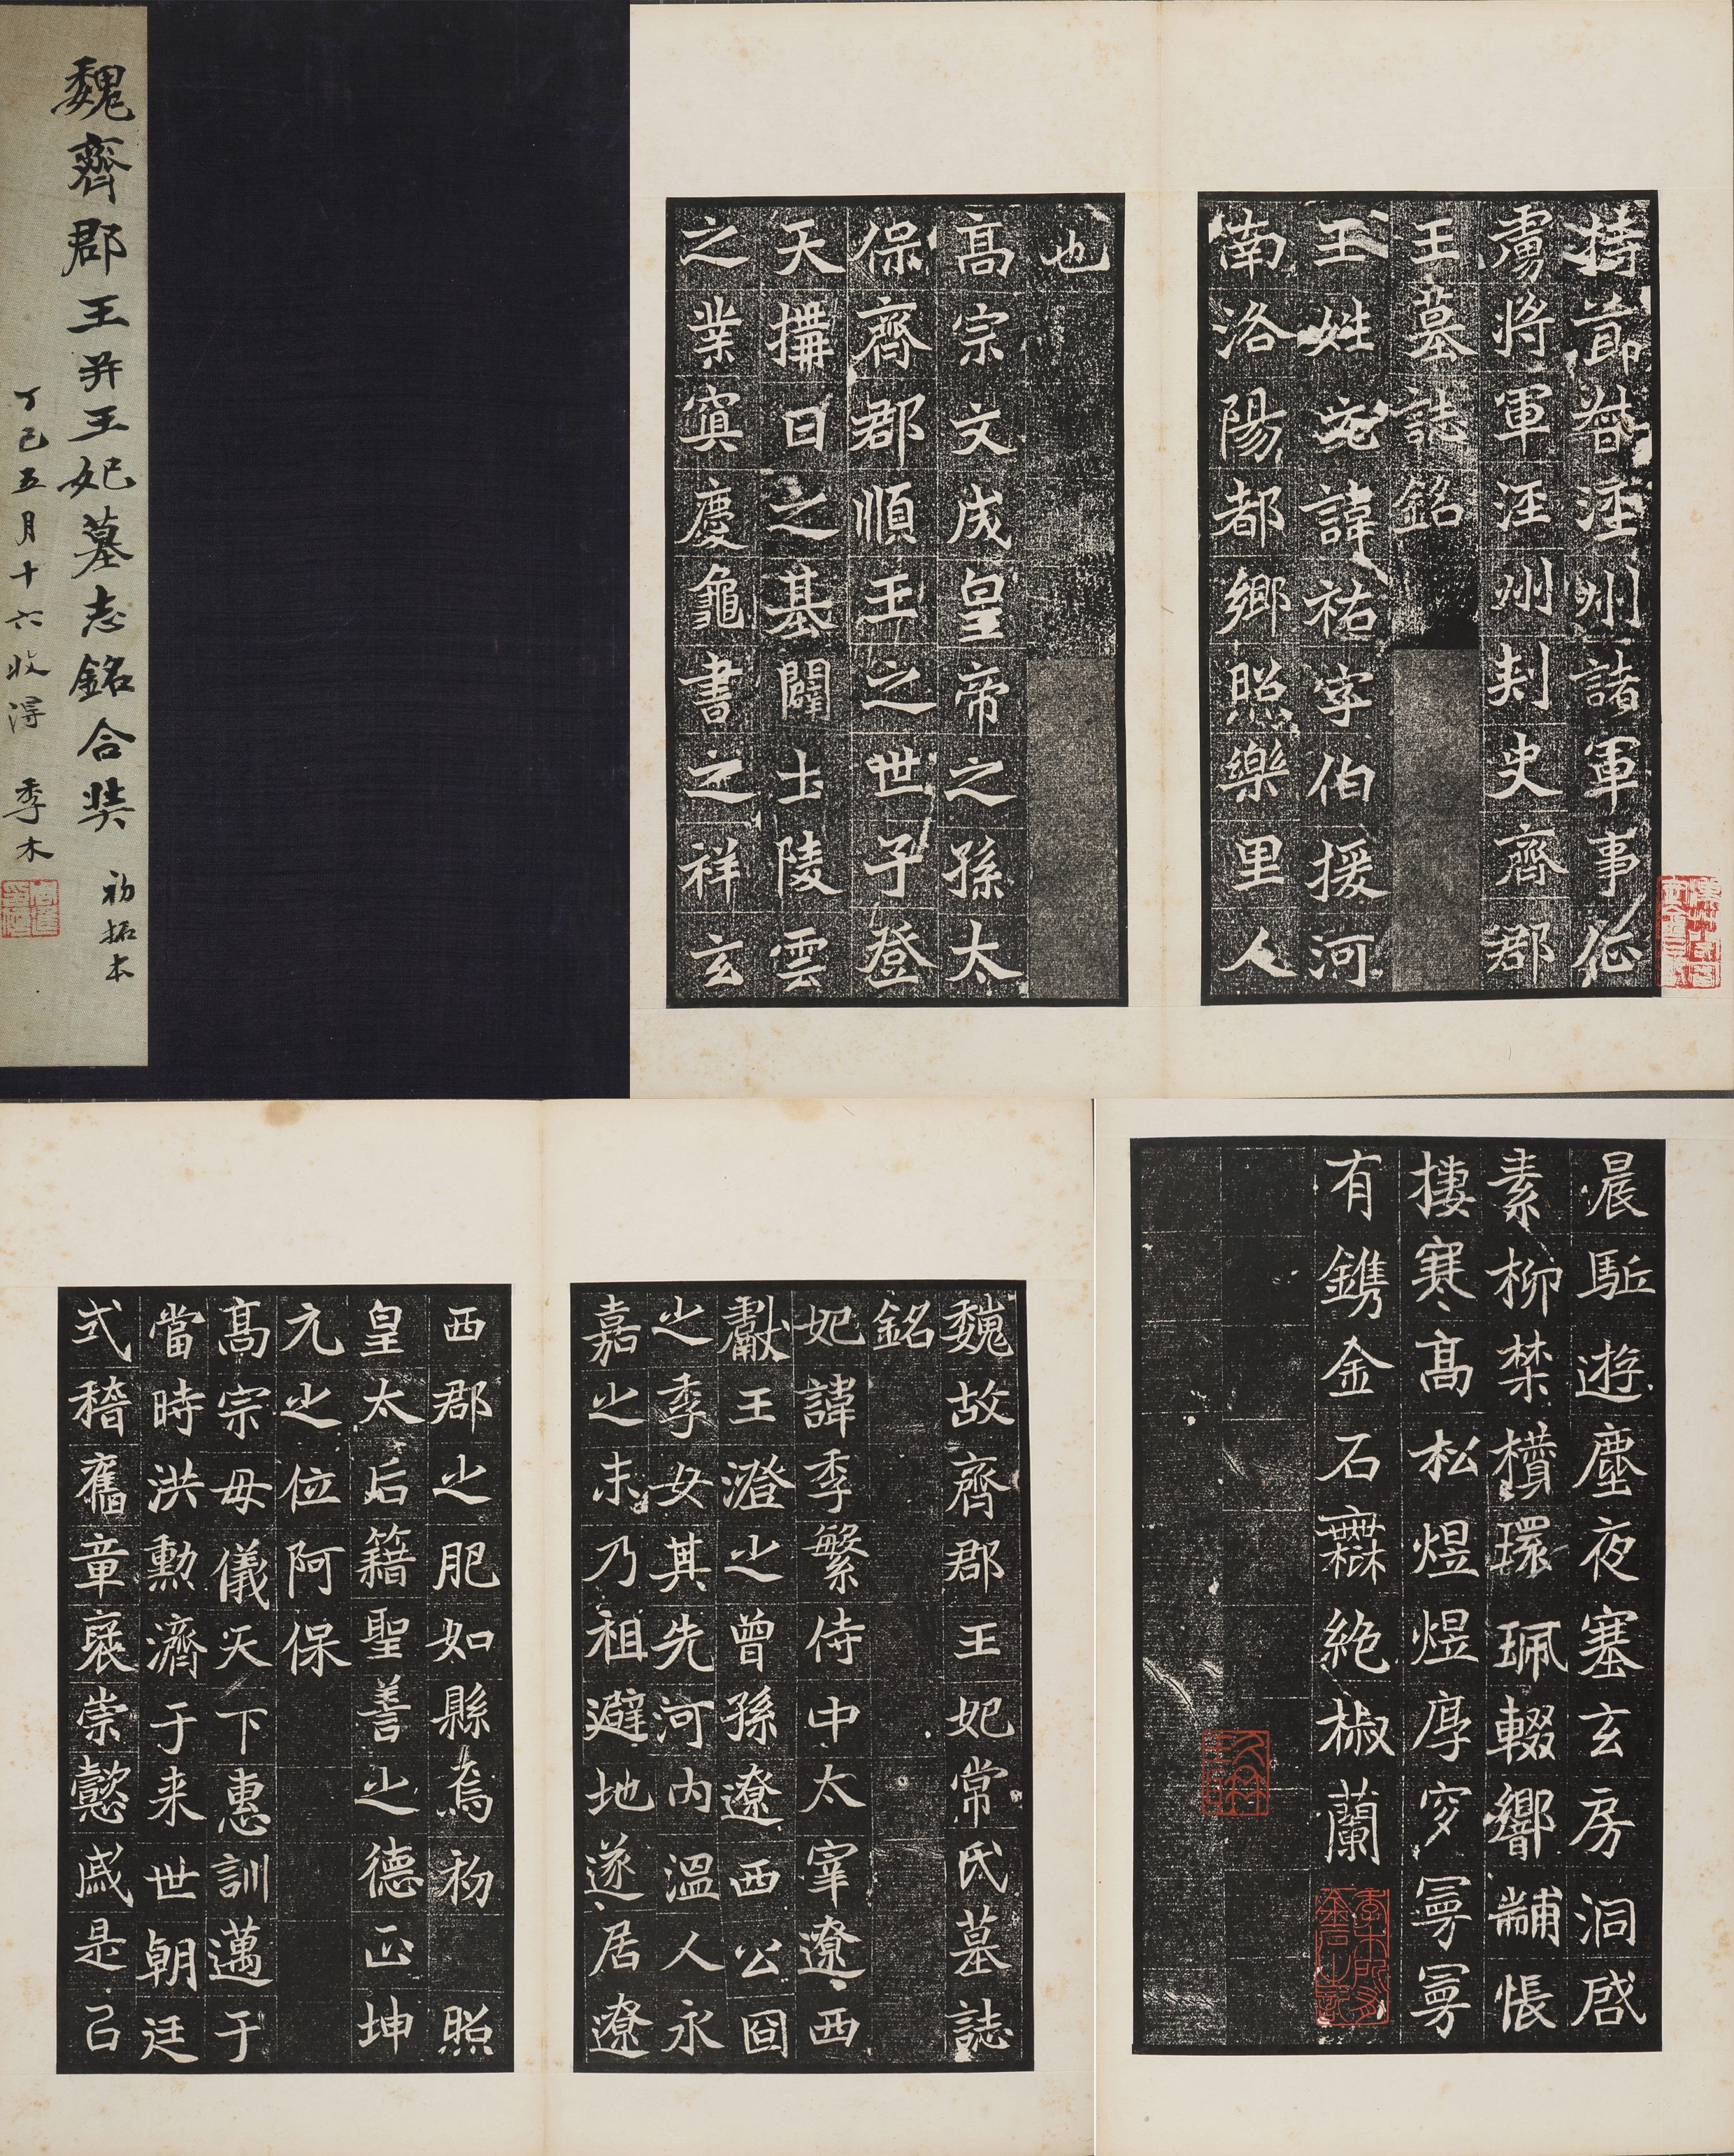 魏齊郡王并王妃墓志銘合裝 初拓本
丁巳五月十六收得 季木
持節督涇州諸軍事征
虜將軍涇州刺史齊郡
王墓誌銘
王姓元諱祐字伯援河
南洛陽都鄉照樂里人
也
高宗文成皇帝之孫太
保齊郡順王之世子登
天構日之基闢土陵雲
之業寘慶龜書之祥玄
魏故齊郡王妃常氏墓誌
銘
妃諱季繁侍中太宰遼西
獻王澄之曾孫遼西公囧
之季女其先河內溫人永
嘉之末乃祖避地遂居遼
西郡之肥如縣焉初 照
皇太后籍聖善之德正坤
元之位阿保
高宗母儀天下惠訓邁于
當時洪勳濟于来世朝廷
式稽舊章褒崇懿戚是以
晨駈遊塵夜塞玄房洞啓
素柳禁櫝環珮輟響黼帳
摟寒高松煜煜厚穸冥冥
有鐫金石無絶椒蘭
季木所藏金石之記